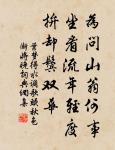 為問山翁何事
坐看流年輕度
拚卻鬢雙華
黃葵得水調歌頭秋色
漸將晚詞典網集